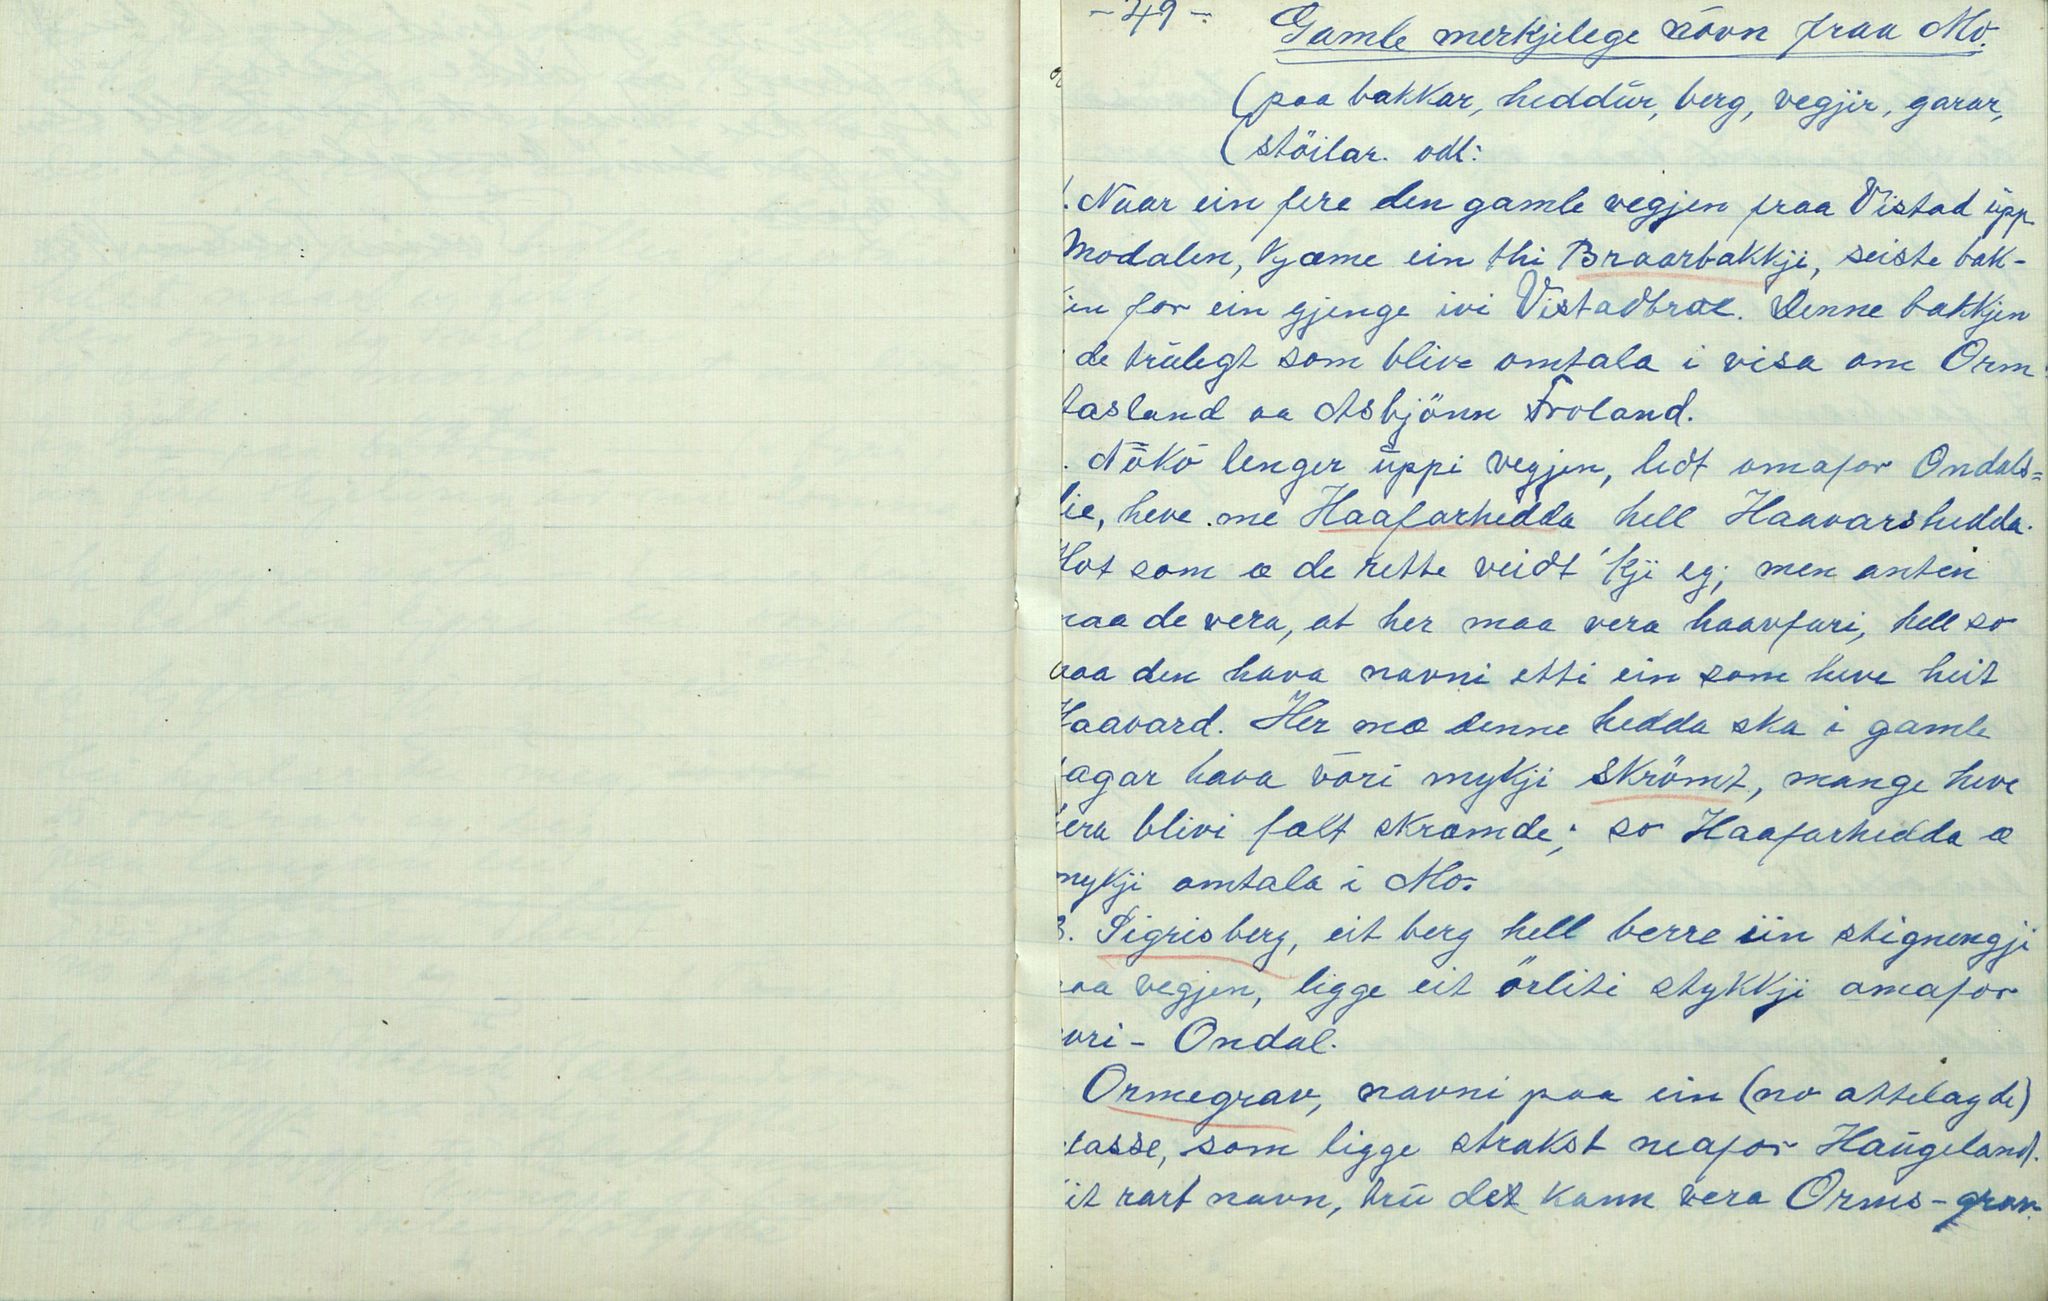 -49-
Gamle merkjelege növn fraa Mo.
(paa bakkar, heddür, berg, vegjir, garar,
(stöilar. odl:
. Naar ein fere den gamle vegjen fraa Vistad üpp
Modalen, kjæme ein thi Braarbakkji, seiste bak-
in for ein gjenge ivi Vistadbrae. Denne bakkjen
de trülegt som blive omtala i visa om Orm
tasland aa Asbjönn Froland.
. Nökö lenger üppi vegjen, lidt omafor Ondals=
lie, heve me Haafarhedda hell Haavarshedda.
Hot som æ de rette veidt 'kji eg; men anten
maa de vera, at her maa vera haavfari, hell so
maa den hava navni etti ein som heve heit
Haavard. Her mæ denne hedda ska i gamle
dagar hava vöri mykji skrömt, mange heve
hera blivi fælt skræmde; so Haafarhedda æ
mykji omtala i Mo.
3. Sigrisberg, eit berg hell berre iin stignengji
paa vegjen, ligge eit örliti stykkji omafor
vri-Ondal.
Ormegrav, navni paa ein (no attelagde)
lasse, som ligge strakst neafor Haügeland.
it rart navn, trü det kann vera Orms-grav.